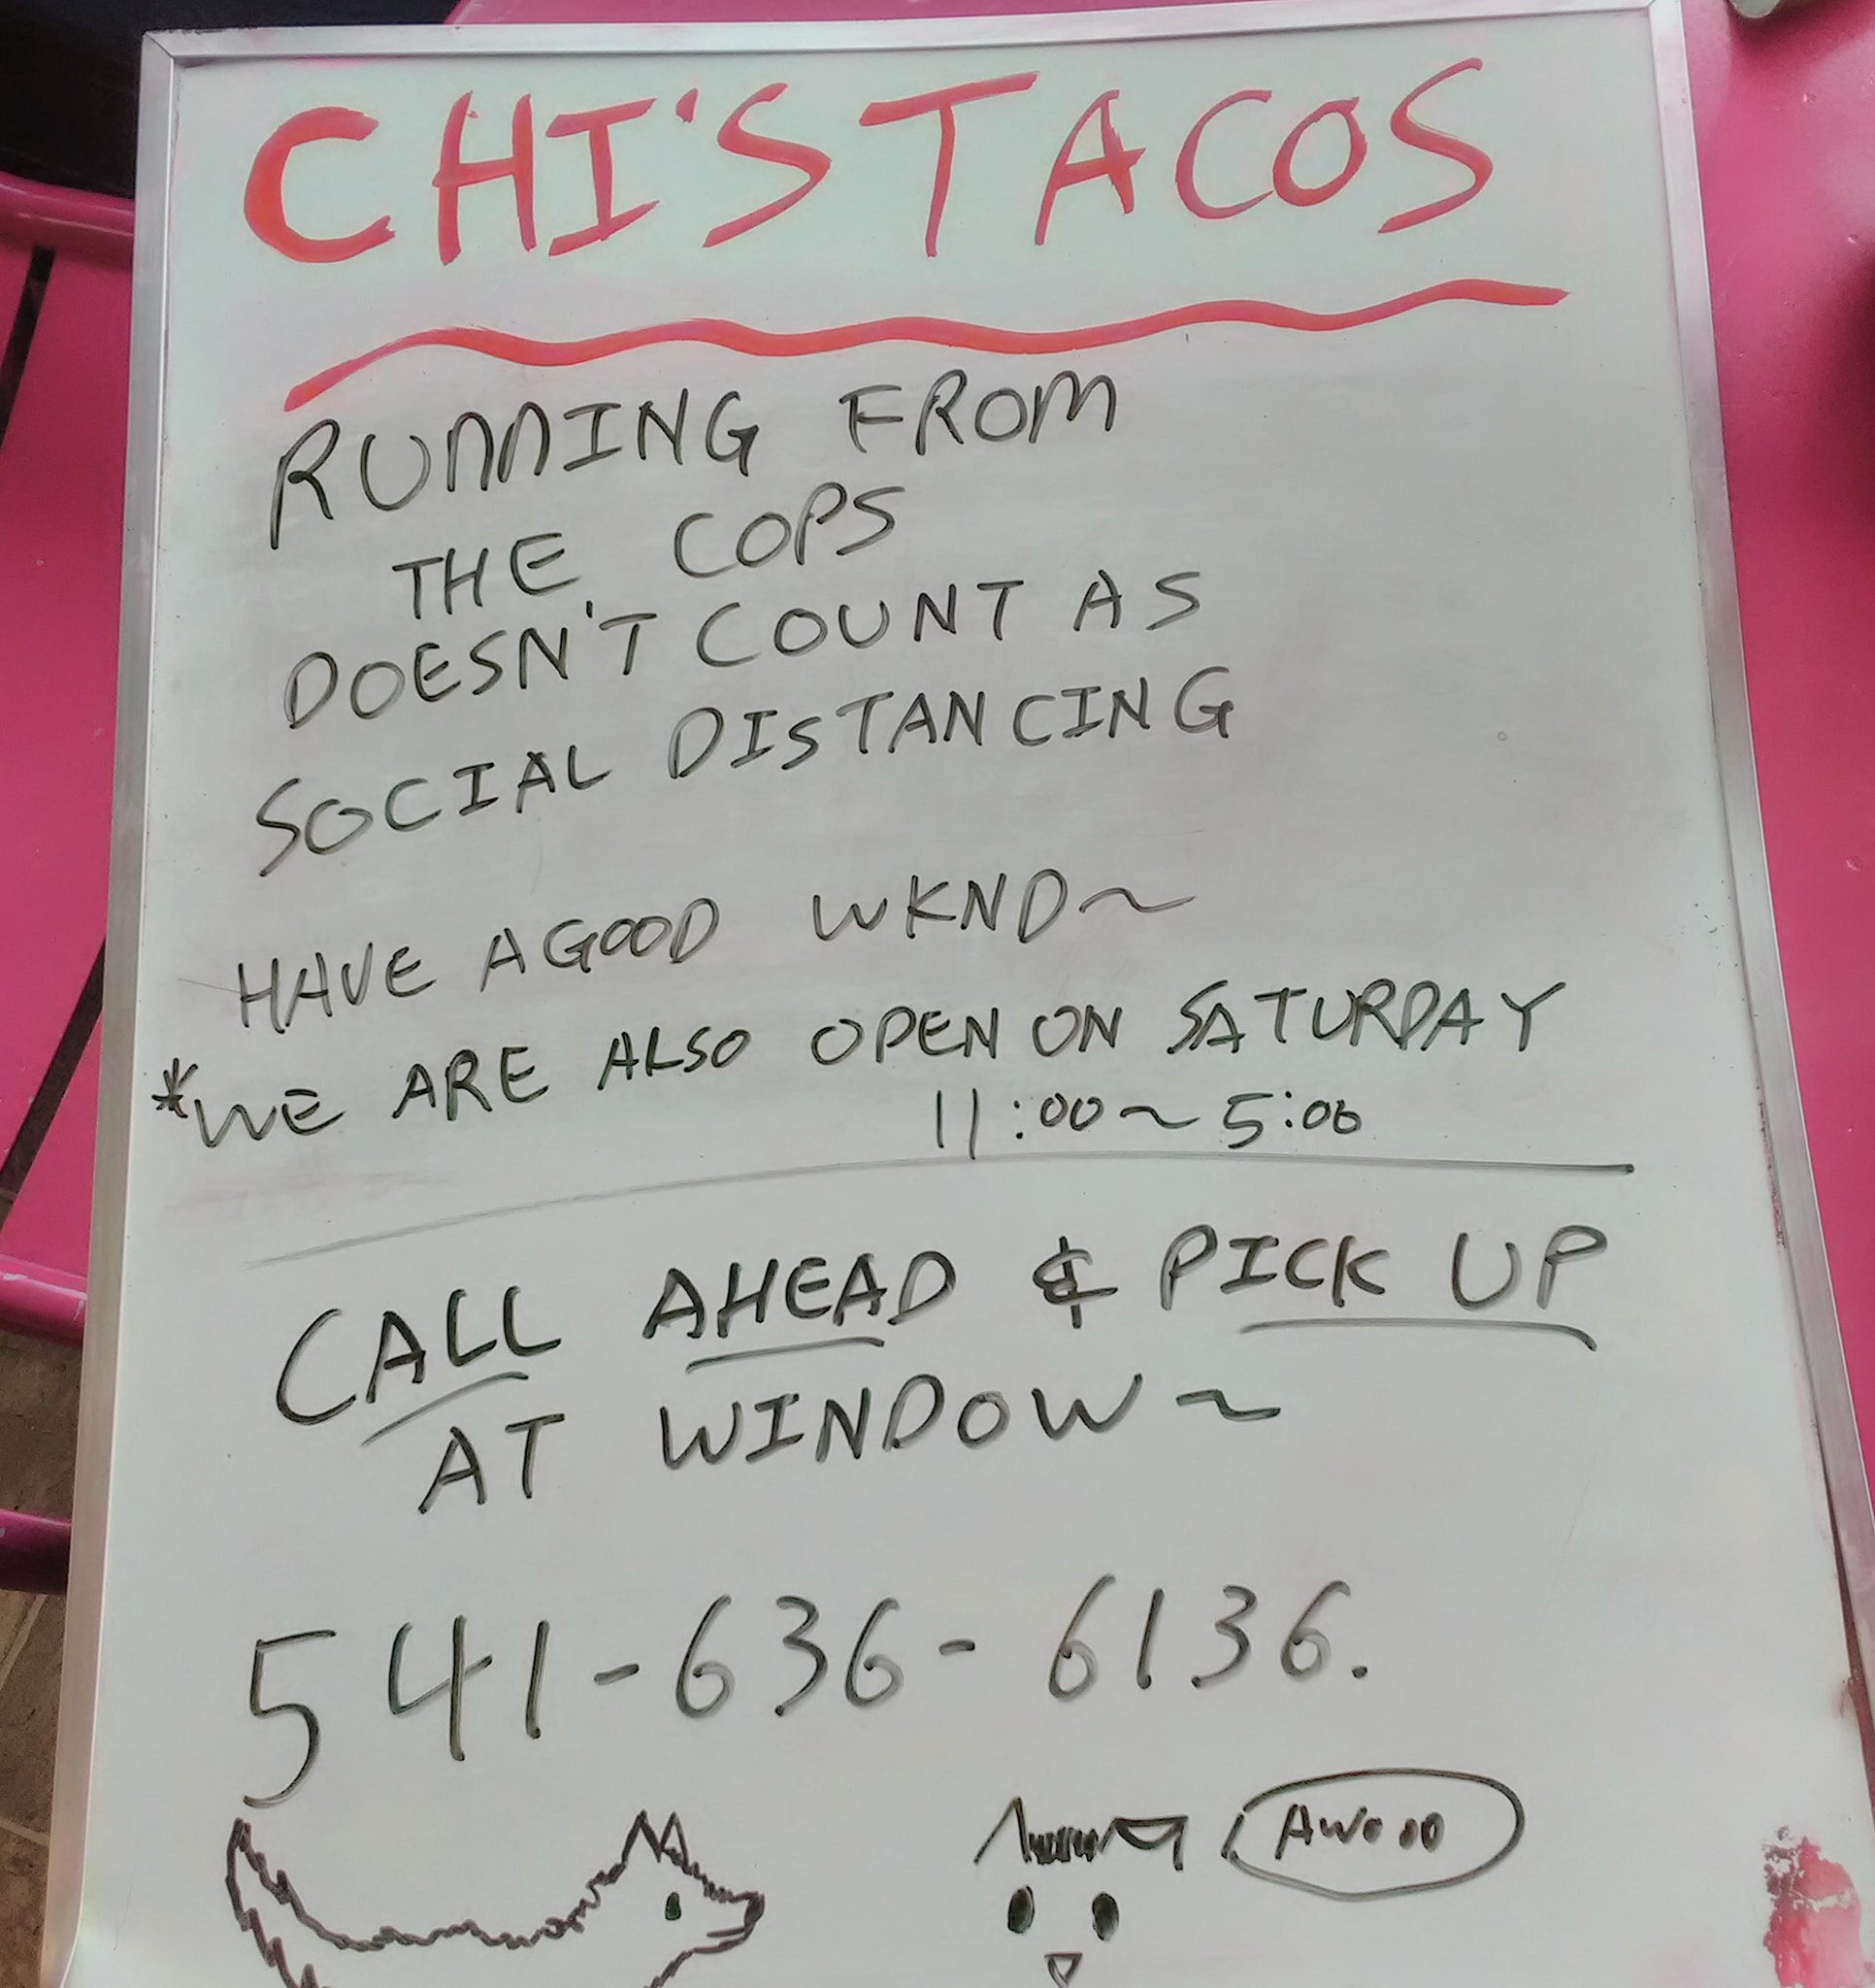 CHI'S TACOS
RUNNING FROM
THE COPS
DOESN'T COUNT AS
SOCIAL DISTANCING
HAVE A GOOD WKND~
*WE ARE ALSO OPEN ON SATURDAY
11:00~5:00
CALL AHEAD & PICK UP
AT WINDOW~
541-636-6136.
AWOOO